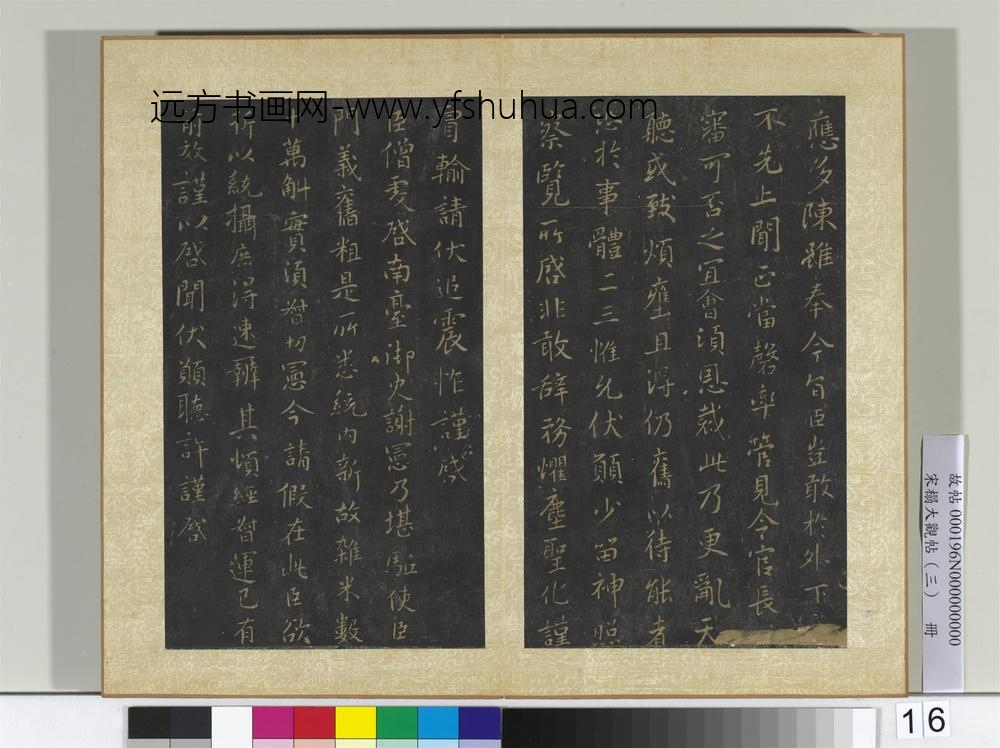 远方书画网-www.yfshuhua.com
應多陳雖奉令旨臣豈敢於外下
不先上聞正當罄率管見令官長
審可否之宜會須恩裁此乃更亂天
聽或致煩壅且得仍舊以待能者
於事體二三惟允伏願少留神照
察覽所啓非敢辞務懼塵聖化謹
冒輸請伏追震怍謹啓
臣僧虔啓南臺御史謝憲乃堪駈使臣
門義舊粗是所悉統内新故雜米數
十萬斛實須督切憲今請假在此臣欲
折以統攝庶得速辦其頃經督運已有
前效謹以啓聞伏願聽許謹啓
故帖 000196N000000000000
宋榻大觀帖（三） 冊
16